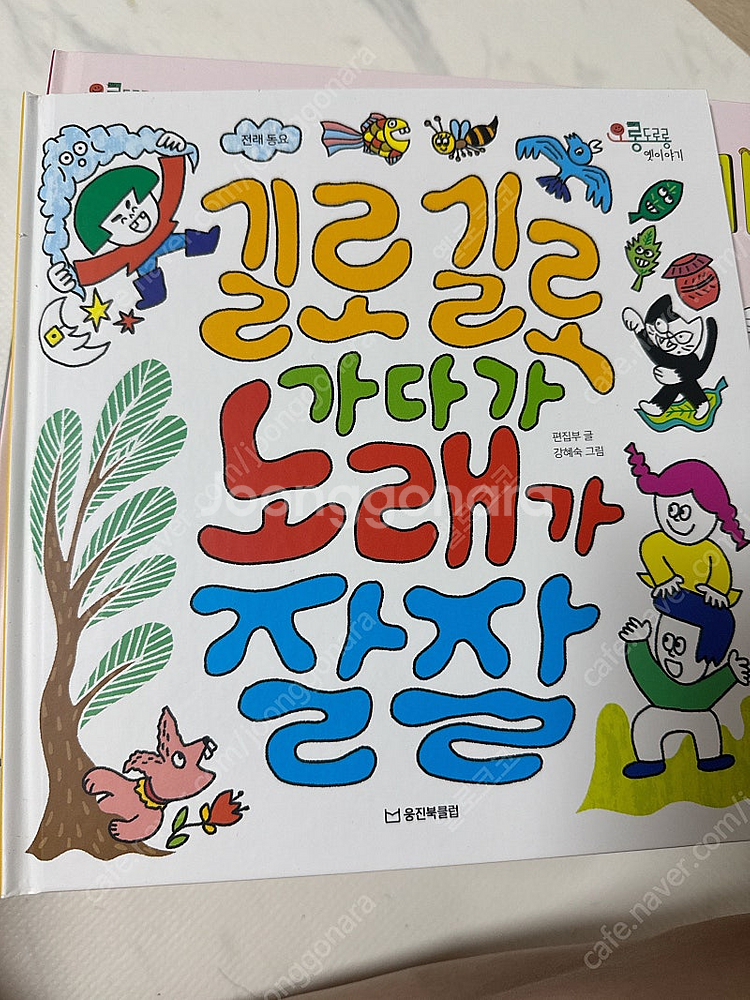 전래 동요
오롱도로롱
옛이야기
길로 길로
가다가
편집부 글
강혜숙 그림
노래가
잘잘
잘잘
웅진북클럽
joonggonara
cafe.naver.com/joonggonara